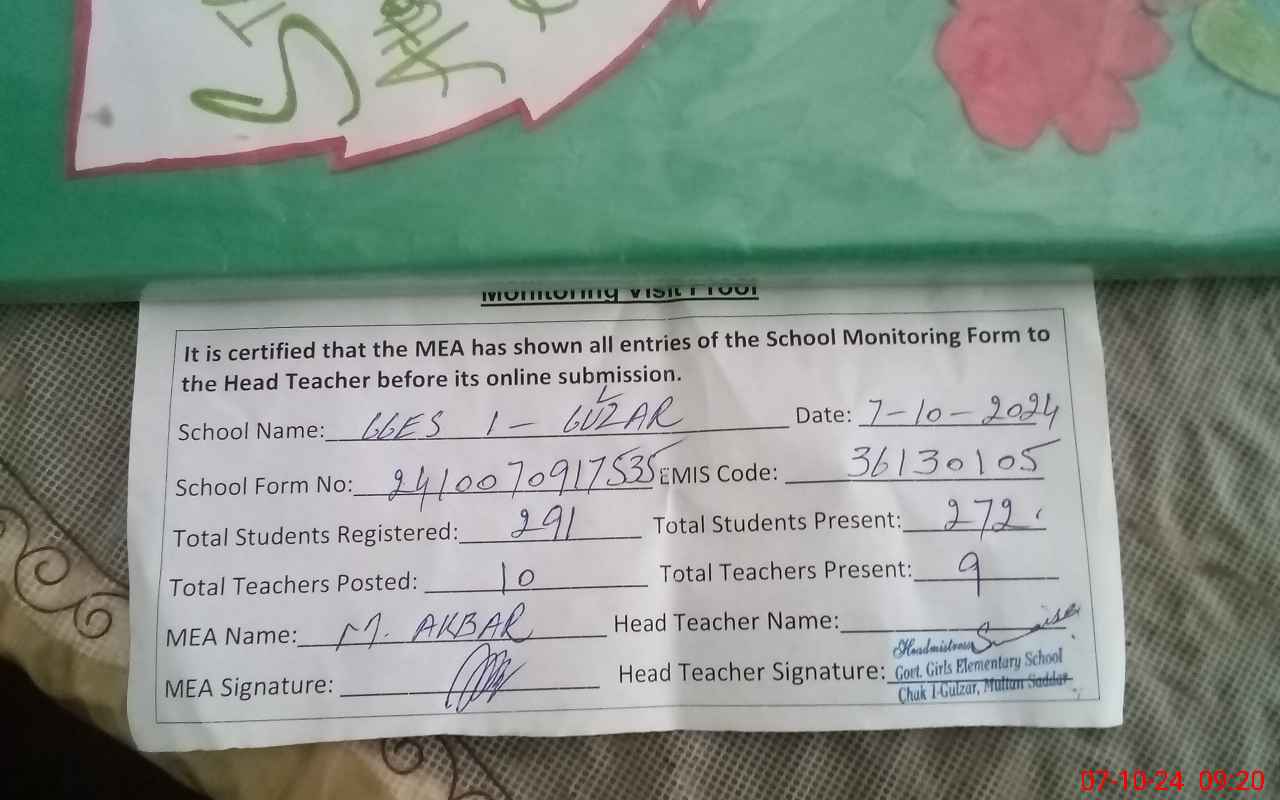 Monitoring Visit Proof
It is certified that the MEA has shown all entries of the School Monitoring Form to
the Head Teacher before its online submission.
School Name: GGES 1 - GULZAR Date: 7-10-2024
School Form No: 2410070917535 EMIS Code: 36130105
Total Students Registered: 291 Total Students Present: 272
Total Teachers Posted: 10 Total Teachers Present: 9
MEA Name: M. AKBAR Head Teacher Name:
MEA Signature: Head Teacher Signature:
Headmistress
Govt. Girls Elementary School
Chak 1-Gulzar, Multan Saddar
07-10-24 09:20